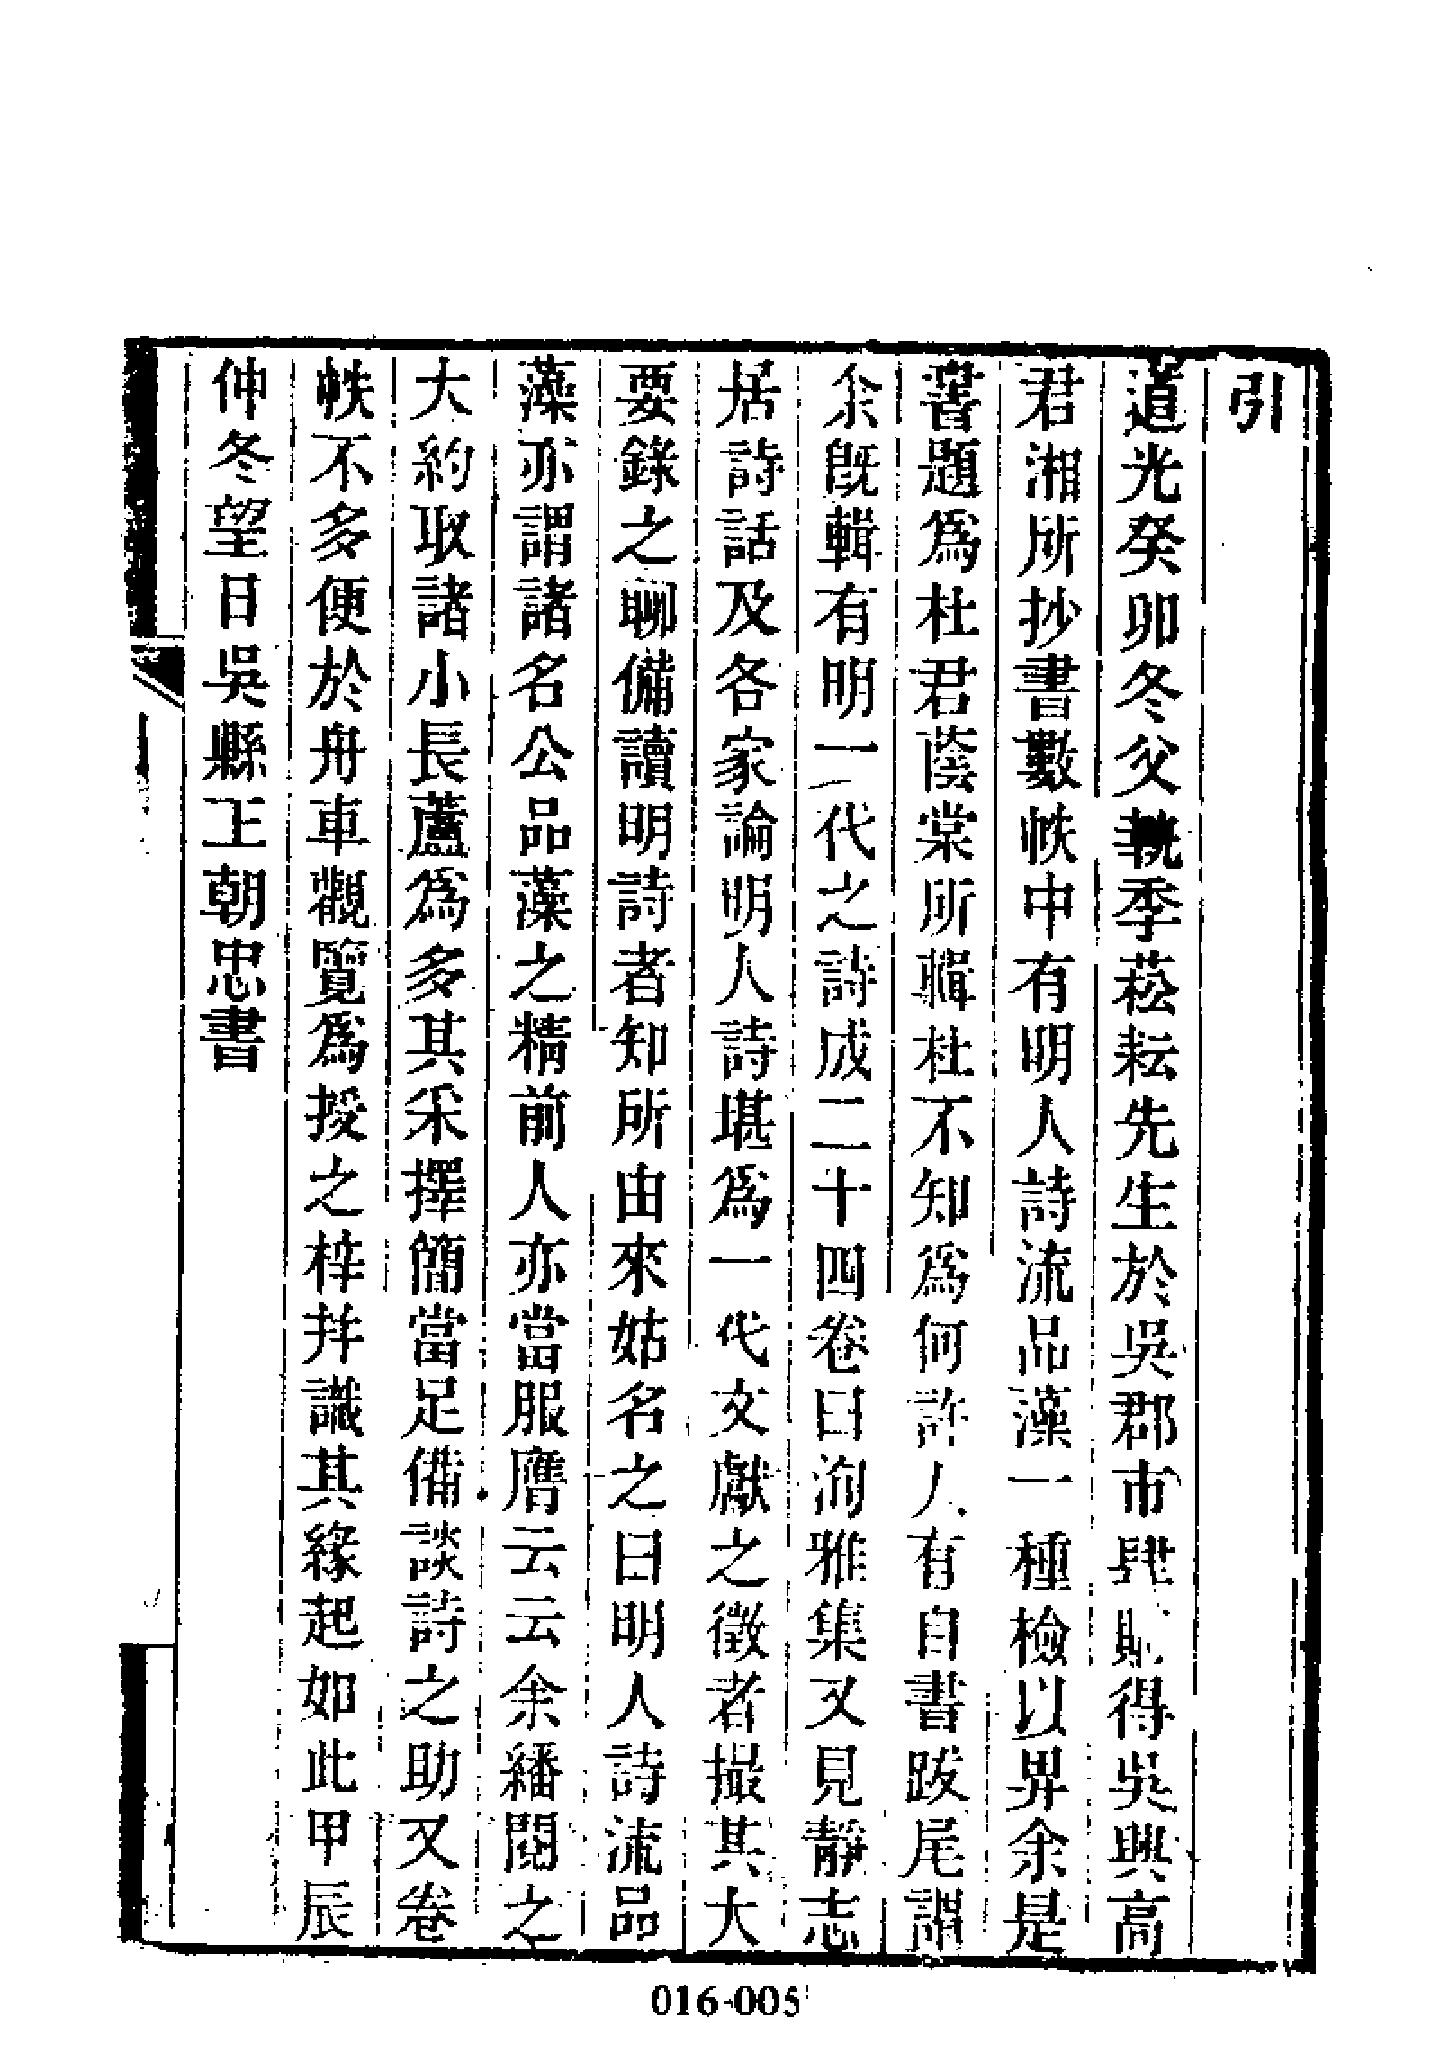 引
道光癸卯冬父執季菘耘先生於吳郡市肆購得吳興高
君湘所抄書數帙中有明人詩流品藻一種檢以畀余是
書題為杜君蔭棠所輯杜不知為何許人有自書跋尾謂
余既輯有明一代之詩成二十四卷曰洵雅集又見靜志
居詩話及各家論明人詩堪為一代文獻之徵者撮其大
要錄之聊備讀明詩者知所由來姑名之曰明人詩流品
藻亦謂諸名公品藻之精前人亦當服膺云云余繙閱之
大約取諸小長蘆為多其采擇簡當足備談詩之助又卷
帙不多便於舟車觀覽為授之梓并識其緣起如此甲辰
仲冬望日吳縣王朝忠書
016-005